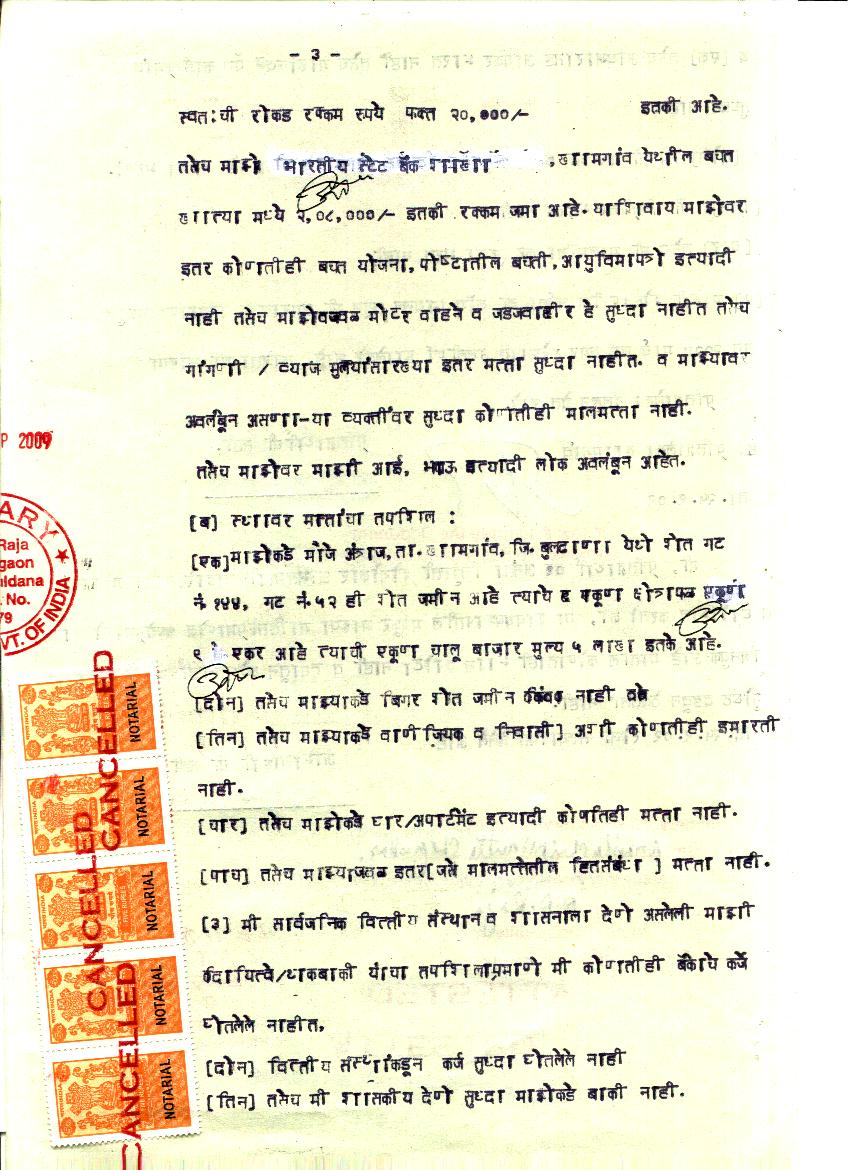 - 3 -
स्वत:ची रोकड रक्कम रुपये फक्त २०,०००/- इतकी आहे.
तसेच माझे भारतीय स्टेट बँक शाखा ,खामगांव येथील बचत
खात्या मध्ये २,०८,०००/- इतकी रक्कम जमा आहे. याशिवाय माझेवर
इतर कोणतीही बचत योजना, पोष्टातील बचती, आयुविमापत्रे इत्यादी
नाही तसेच माझेवजवळ मोटर वाहने व जडजवाहीर हे सुध्दा नाहीत तसेच
मांगणी / व्याज मुल्यांसारख्या इतर मत्ता सुध्दा नाहीत. व माझ्यावर
अवलंबून असणा-या व्यक्तींवर सुध्दा कोणतीही मालमत्ता नाही.
तसेच माझेवर माझी आई, भाऊ इत्यादी लोक अवलंबून आहेत.
[ब] स्थावर मात्तांचा तपशिल :
[एक] माझेकडे मौजे अंत्रज, ता. खामगांव, जि. बुलढाणा येथे शेत गट
नं. १४४, गट नं. ५२ ही शेत जमीन आहे त्याचे एकूण क्षेत्रफळ एकूण
९ एकर आहे त्याची एकूण चालू बाजार मुल्य ५ लाख इतके आहे.
[दोन] तसेच माझ्याकडे बिगर शेत जमीन नाही
[तिन] तसेच माझ्याकडे वाणीज्यिक व निवासी] अशी कोणतीही इमारती
नाही.
[चार] तसेच माझेकडे घर/अपार्टमेंट इत्यादी कोणतिही मत्ता नाही.
[पाच] तसेच माझ्याजवळ इतर[जसे मालमत्तेतील हितसंबंध ] मत्ता नाही.
[३] मी सार्वजनिक वित्तीय संस्थान व शासनाला देणे असलेली माझी
दायित्वे/थकबाकी यांचा तपशिलाप्रमाणे मी कोणतीही बँकाचे कर्जे
घेतलेले नाहीत,
[दोन] वित्तीय संस्थांकडून कर्ज सुध्दा घेतलेले नाही
[तिन] तसेच मी शासकीय देणे सुध्दा माझेकडे बाकी नाही.
P 2009
ARY
Raja
gaon
ldana
No.
79
VT. OF INDIA
NOTARIAL
NOTARIAL
NOTARIAL
NOTARIAL
NOTARIAL
CANCELLED
CANCELLED
CANCELLED